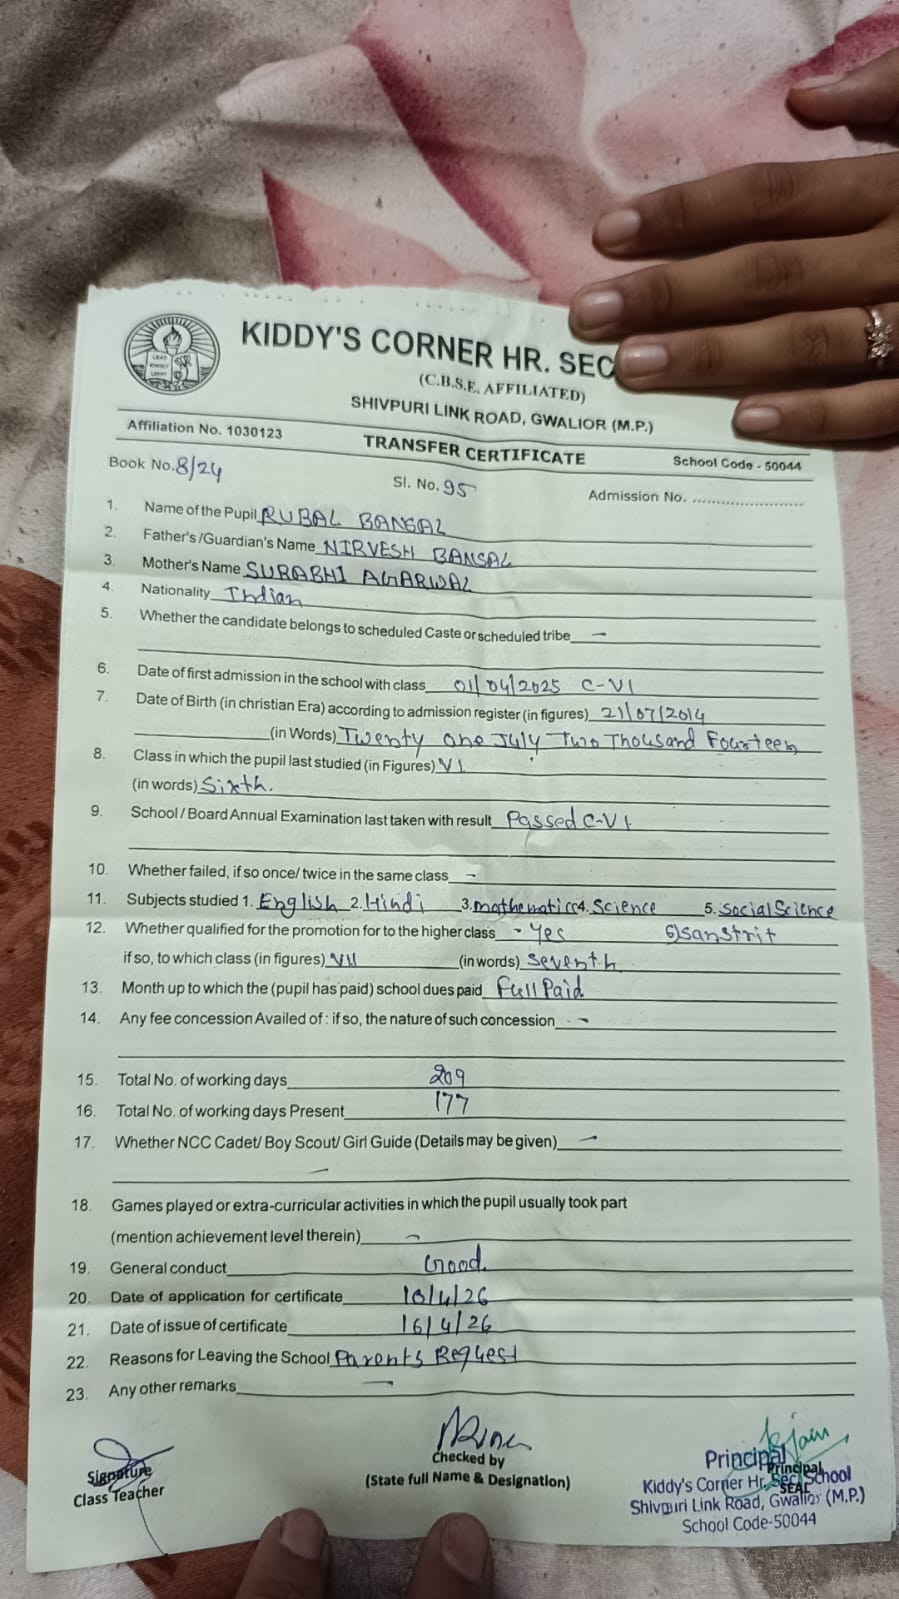 KIDDY'S CORNER HR. SEC
(C.B.S.E. AFFILIATED)
SHIVPURI LINK ROAD, GWALIOR (M.P.)
Affiliation No. 1030123 TRANSFER CERTIFICATE School Code - 50044
Book No. 8/24 Sl. No. 95 Admission No. ........................
1. Name of the Pupil RUBAL BANSAL
2. Father's /Guardian's Name NIRVESH BANSAL
3. Mother's Name SURABHI AGARWAL
4. Nationality Indian
5. Whether the candidate belongs to scheduled Caste or scheduled tribe —
6. Date of first admission in the school with class 01/04/2025 C-VI
7. Date of Birth (in christian Era) according to admission register (in figures) 21/07/2014
(in Words) Twenty one July Two Thousand Fourteen
8. Class in which the pupil last studied (in Figures) VI
(in words) Sixth.
9. School / Board Annual Examination last taken with result Passed C-VI
10. Whether failed, if so once/ twice in the same class -
11. Subjects studied 1. English 2. Hindi 3. mathematics 4. Science 5. Social Science
12. Whether qualified for the promotion for to the higher class - Yes 6) Sanstrit
if so, to which class (in figures) VII (in words) Seventh
13. Month up to which the (pupil has paid) school dues paid Full Paid
14. Any fee concession Availed of : if so, the nature of such concession -
15. Total No. of working days 209
16. Total No. of working days Present 177
17. Whether NCC Cadet/ Boy Scout/ Girl Guide (Details may be given) —
—
18. Games played or extra-curricular activities in which the pupil usually took part
(mention achievement level therein) -
19. General conduct Good.
20. Date of application for certificate /4/26
21. Date of issue of certificate 16/4/26
22. Reasons for Leaving the School Parents Request
23. Any other remarks —
Signature
Class Teacher
Checked by
(State full Name & Designation)
Kjain
Principal
Principal
Kiddy's Corner Hr. Sec. School
SEAL
Shivpuri Link Road, Gwalior (M.P.)
School Code-50044